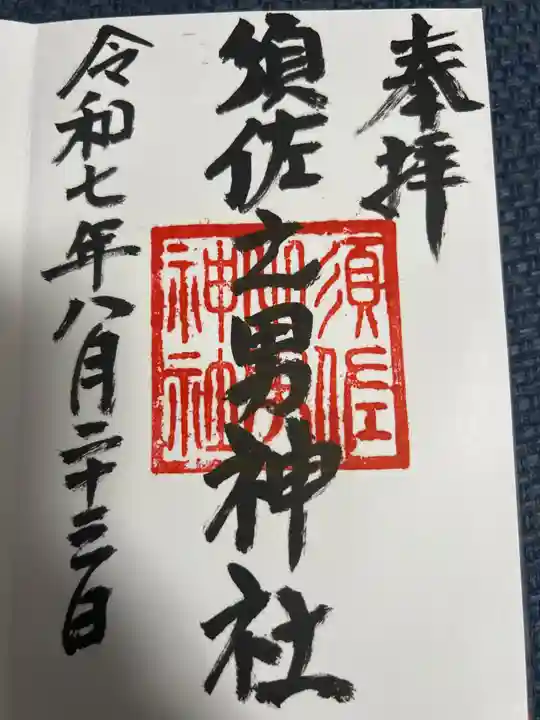 奉拝
須佐之男神社
須佐
神社
令和七年八月二十三日